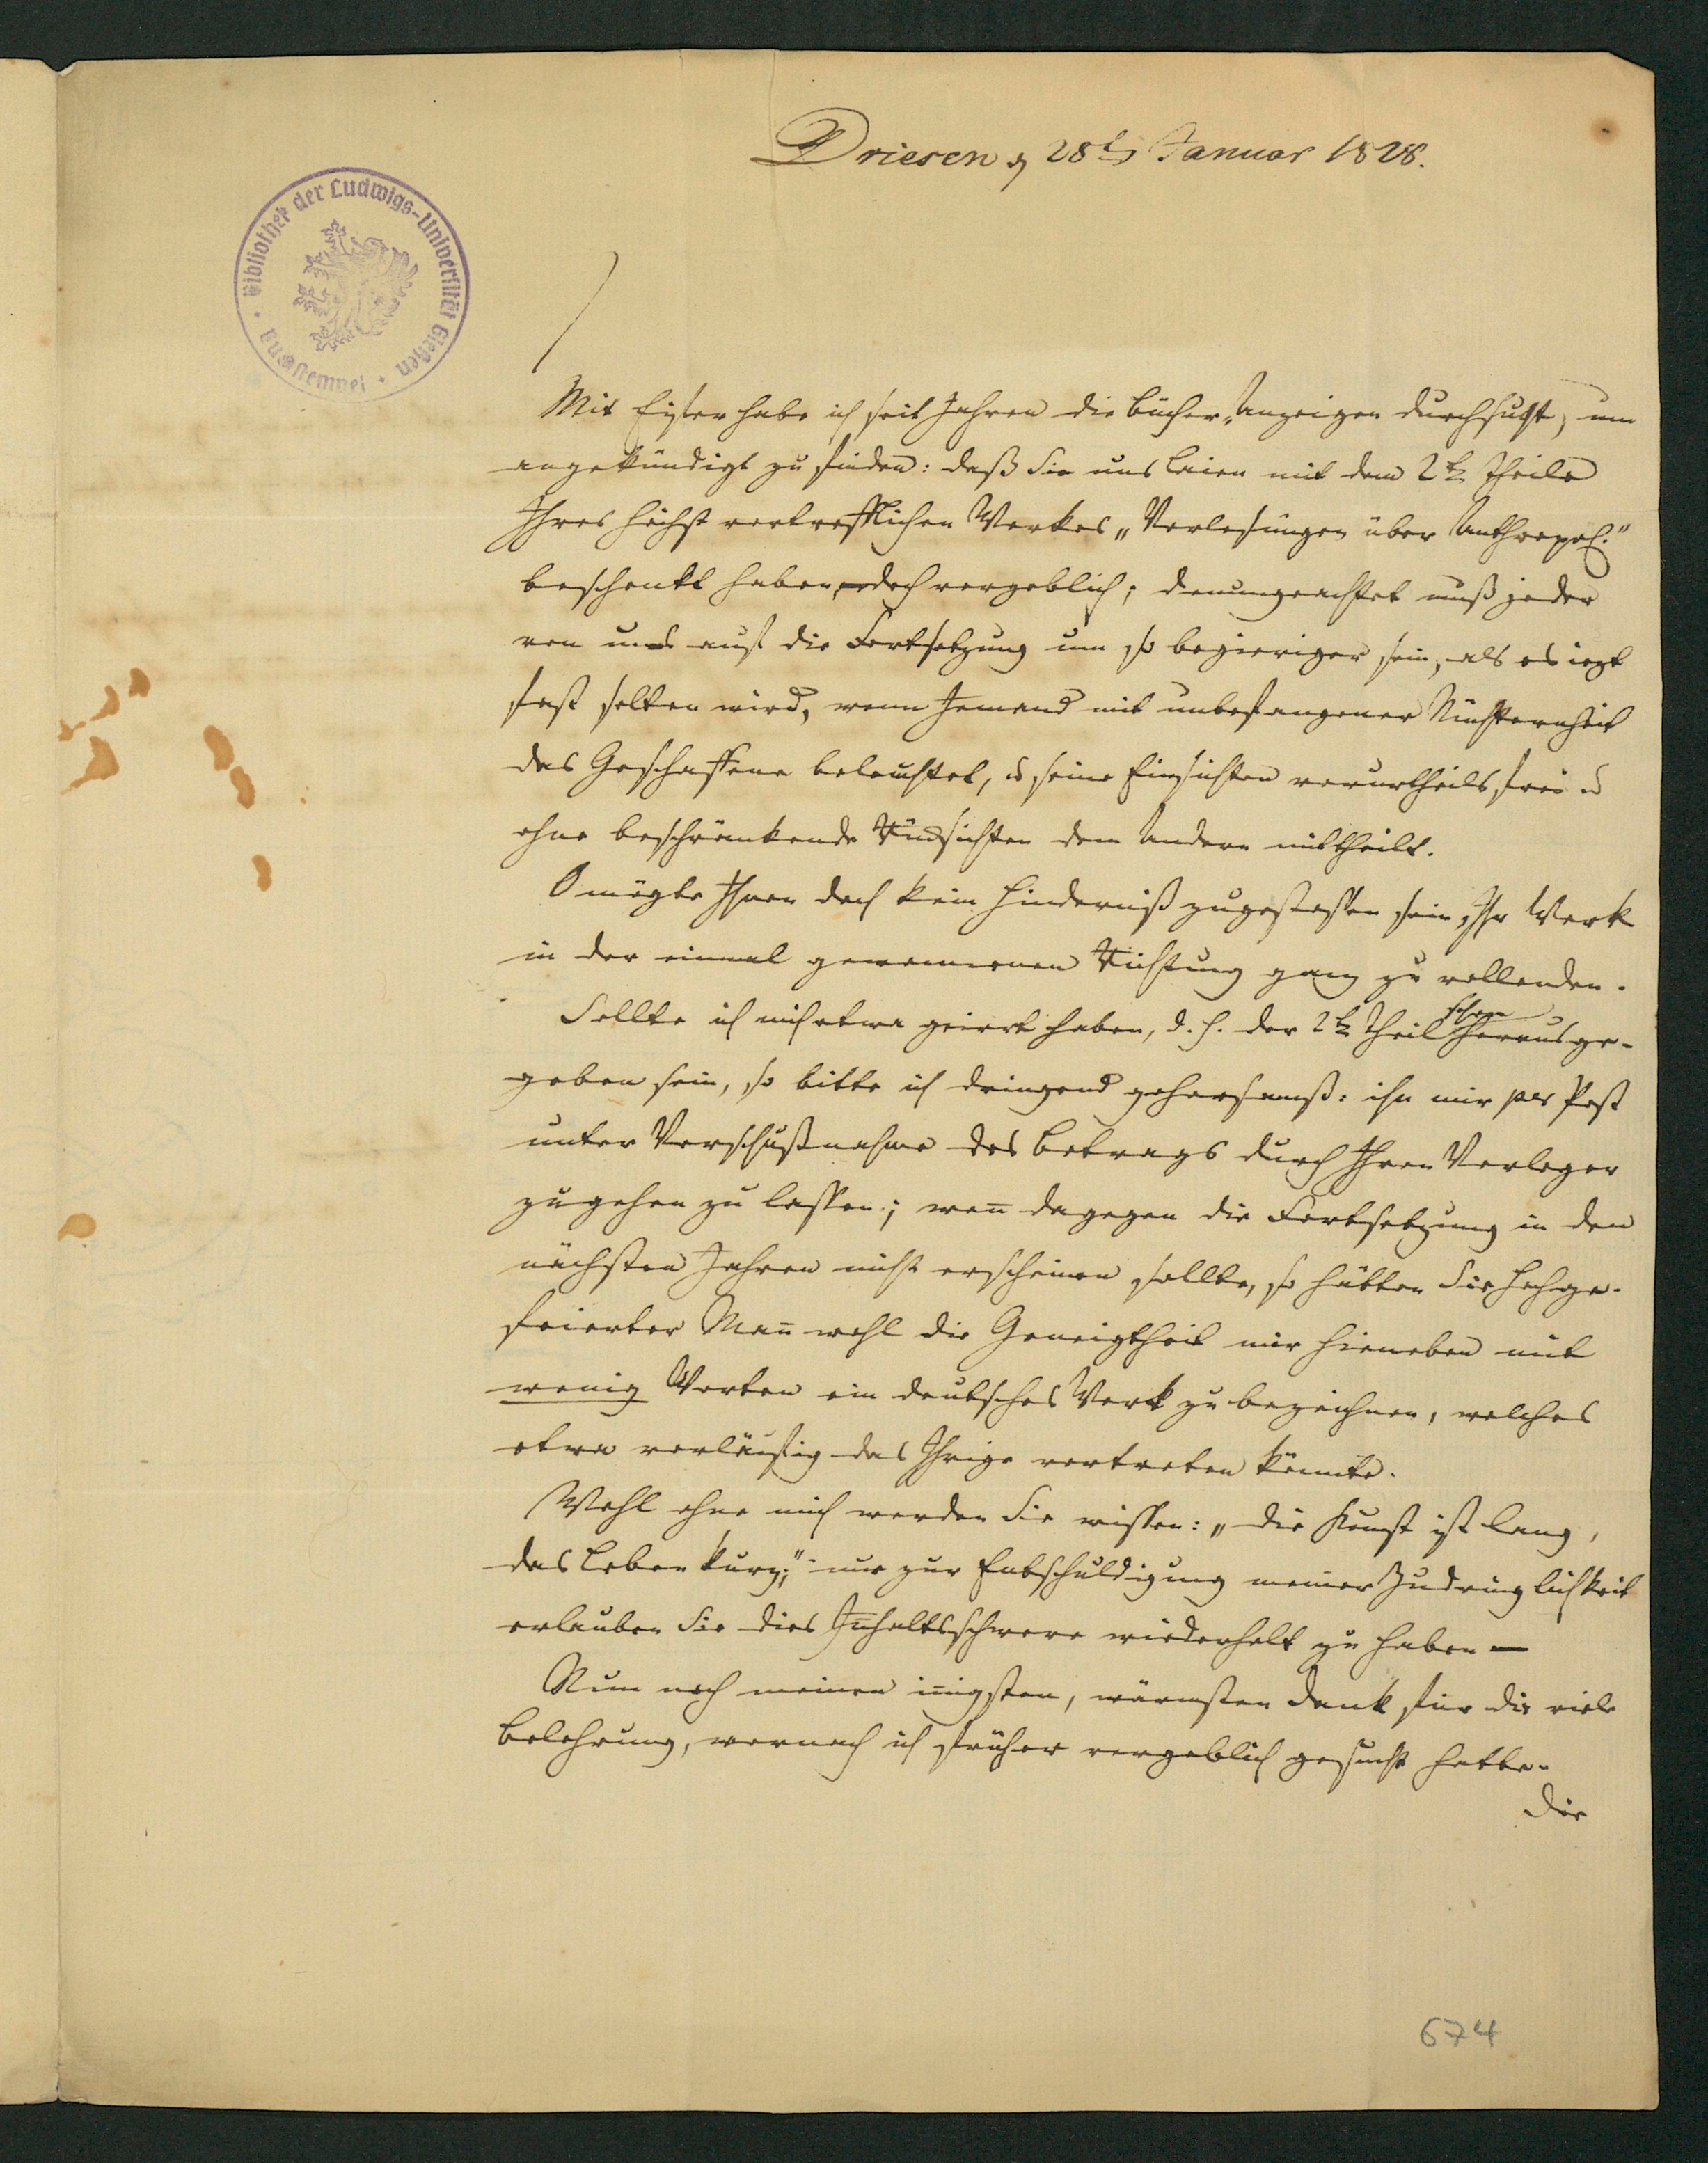 Driesen d 28t Januar 1828.
Bibliothek der Ludwigs-Universität Gießen
Mit Eifer habe ich seit Jahren die Bücher-Anzeigen durchsucht, um
angekündigt zu finden: daß Sie uns Laien mit dem 2t Theile
Ihres höchst vortrefflichen Werkes „Vorlesungen über Anthropol.“
beschenkt haben, doch vergeblich; demungeachtet muß jeder
von uns auf die Fortsetzung um so begieriger sein, als es iezt
fast selten wird, wenn Jemand mit unbefangener Nüchternheit
das Geschaffene beleuchtet, u seine Einsichten vorurtheilsfrei u
ohne beschränkende Rücksichten dem Andern mittheilt.
O mögte Ihnen doch kein Hinderniß zugestoßen sein, Ihr Werk
in der einmal genommenen Richtung ganz zu vollenden.
schon
Sollte ich mich etwa geirrt haben, d. h. der 2te Theil herausge-
geben sein, so bitte ich dringend gehorsamst: ihn mir per Post
unter Vorschußnahme des Betrags durch Ihren Verleger
zugehen zu lassen; wen̅ dagegen die Fortsetzung in den
nächsten Jahren nicht erscheinen sollte, so hätten Sie hochge-
feierter Man̅ wohl die Geneigtheit mir hieneben mit
wenig Worten ein deutsches Werk zu bezeichnen, welches
etwa vorläufig das Ihrige vertreten könnte.
Wohl ohne mich werden Sie wissen: „die Kunst ist lang,
das Leben kurz;“ nur zur Entschuldigung meiner Zudringlichkeit
erlauben Sie dies Inhaltsschwere wiederholt zu haben —
Nun noch meinen in̅igsten, wärmsten Dank für die viele
Belehrung, wornach ich früher vergeblich gesucht hatte.
Die
674